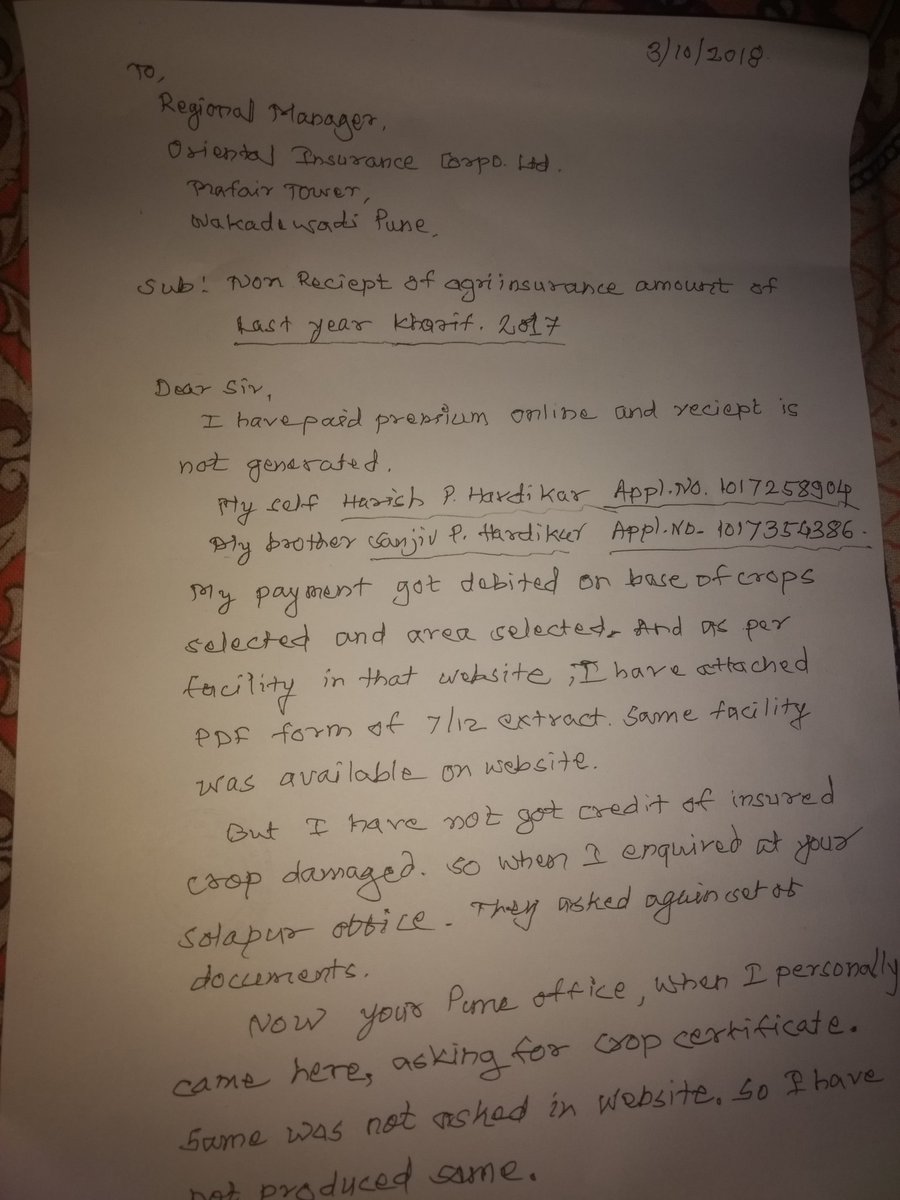 3/10/2018.
To,
Regional Manager,
Oriental Insurance Corpo. Ltd.
Prafair Tower,
Wakadewadi Pune,
Sub: Non Reciept of agriinsurance amount of
Last year Kharif. 2017
Dear Sir,
I have paid premium online and reciept is
not generated.
My self Harish P. Hardikar Appl.No. 1017258904
My brother Sanjiv P. Hardikar Appl.No- 1017354386.
My payment got debited on base of crops
selected and area selected. And as per
facility in that website, I have attached
PDF form of 7/12 extract. Same facility
was available on website.
But I have not got credit of insured
crop damaged. So when I enquired at your
Solapur office. They asked again set of
documents.
Now your Pune office, when I personally
came here, asking for crop certificate.
Same was not asked in website. So I have
not produced same.